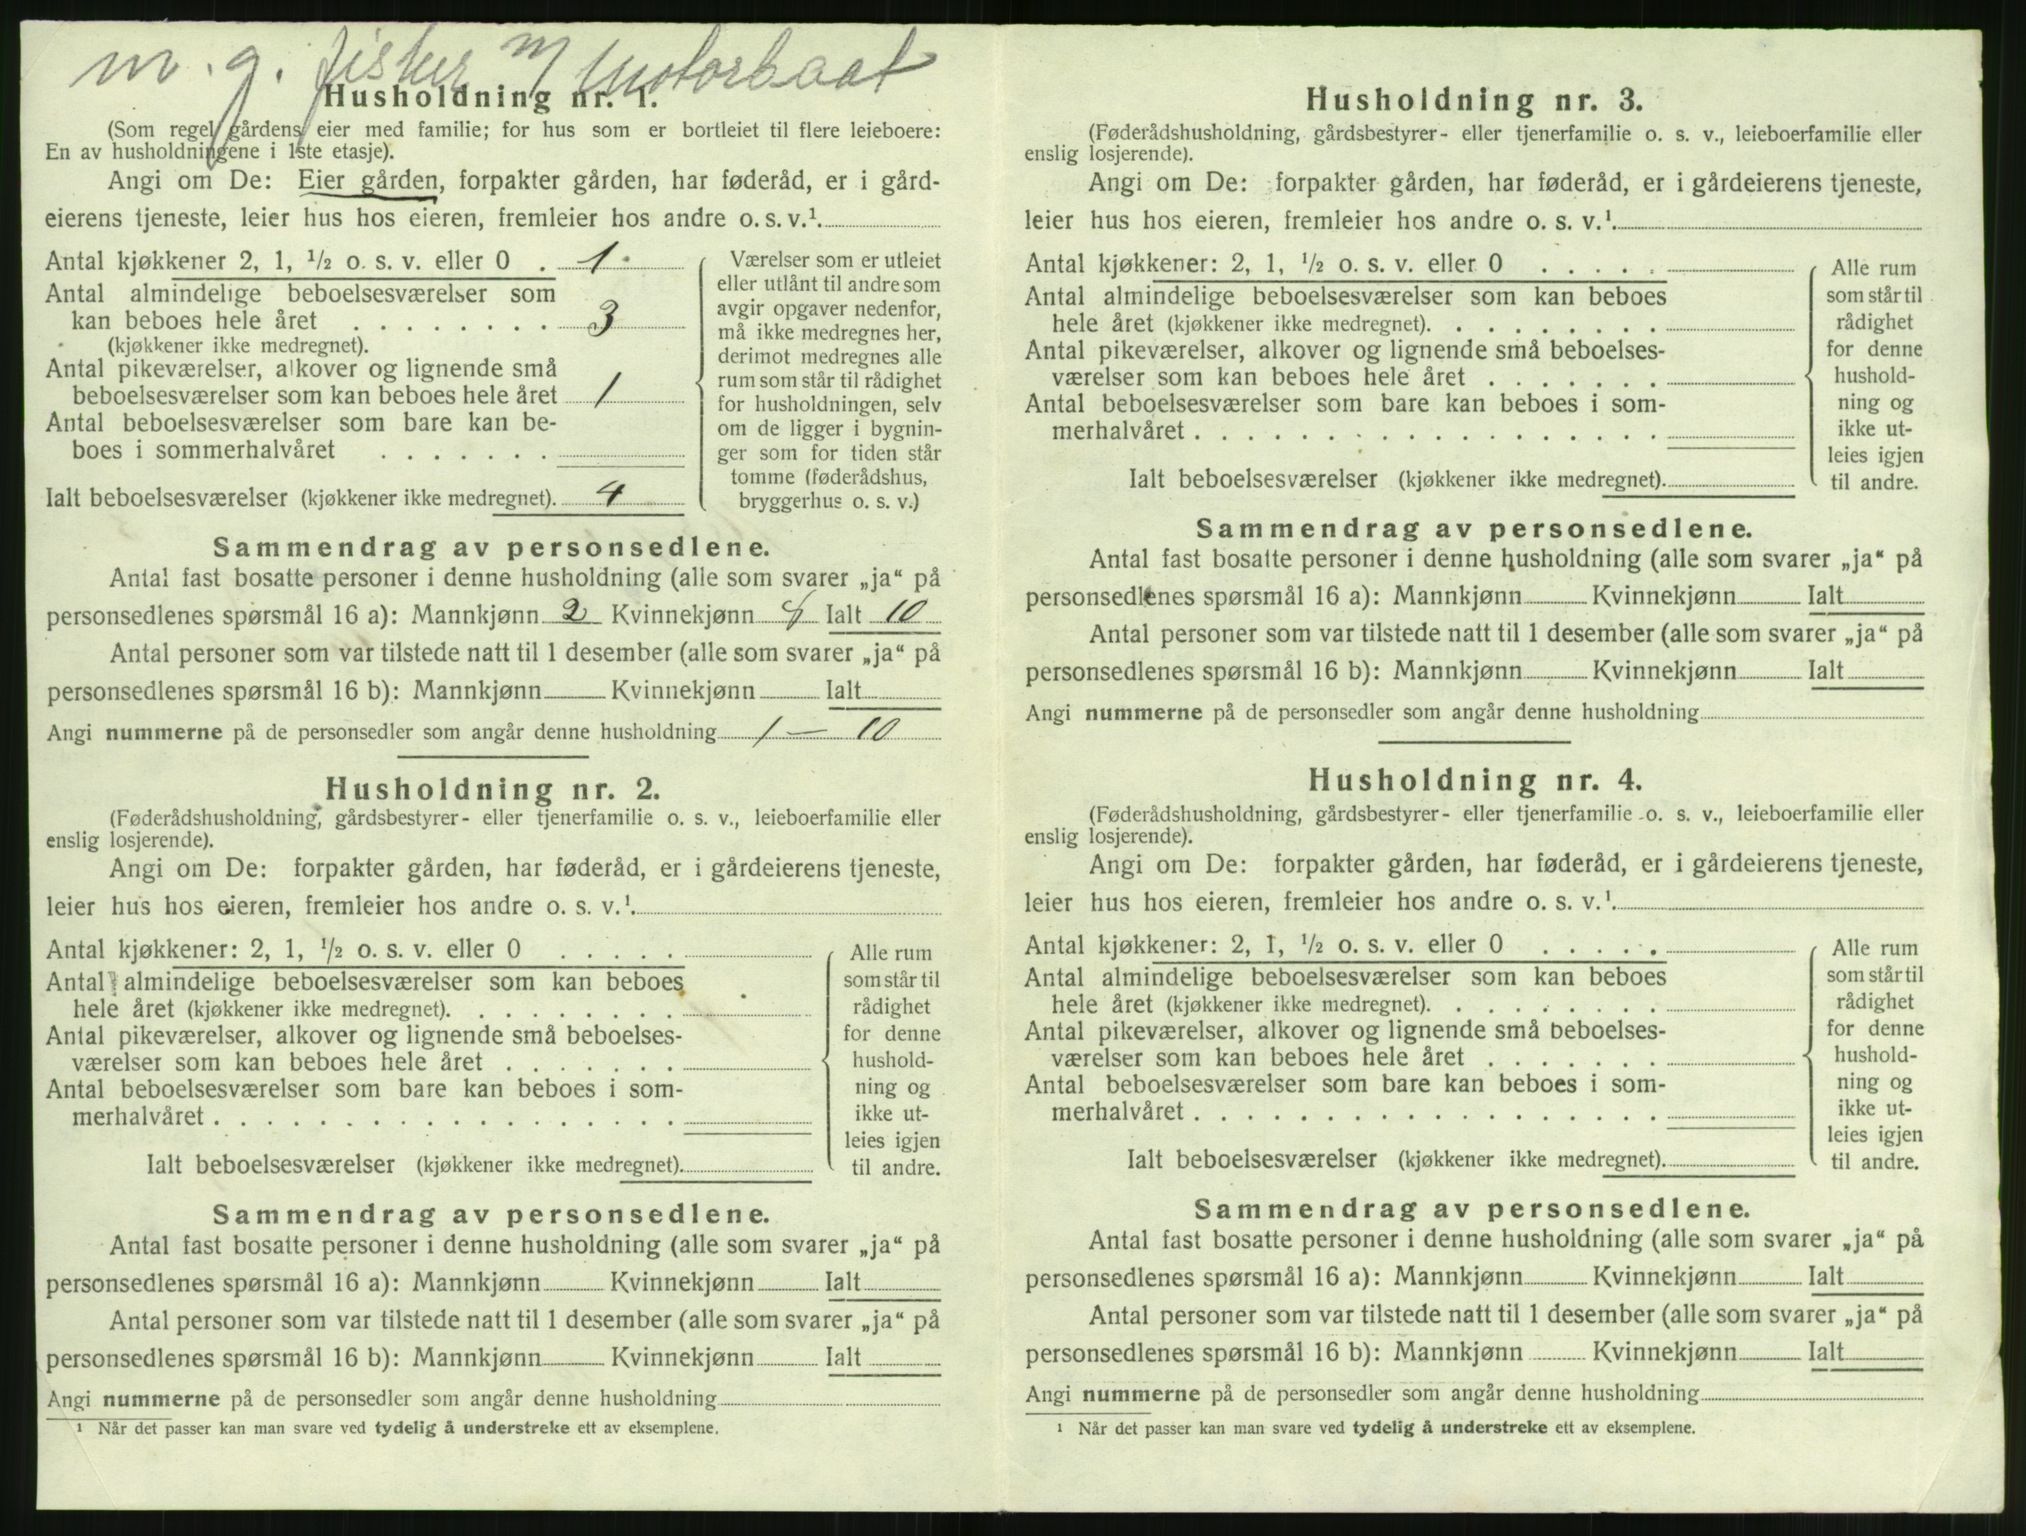 m. g. fisker m/ motorbaat
Husholdning nr. 1.
(Som regel gårdens eier med familie; for hus som er bortleiet til flere leieboere:
En av husholdningene i 1ste etasje).
Angi om De: Eier gården, forpakter gården, har føderåd, er i gård-
eierens tjeneste, leier hus hos eieren, fremleier hos andre o. s. v.¹
Antal kjøkkener 2, 1, ½ o. s. v. eller 0 . 1
Antal almindelige beboelsesværelser som
kan beboes hele året . . . . . . . . 3
(kjøkkener ikke medregnet).
Antal pikeværelser, alkover og lignende små
beboelsesværelser som kan beboes hele året 1
Antal beboelsesværelser som bare kan be-
boes i sommerhalvåret . . . . . . .
Ialt beboelsesværelser (kjøkkener ikke medregnet). 4
Værelser som er utleiet
eller utlånt til andre som
avgir opgaver nedenfor,
må ikke medregnes her,
derimot medregnes alle
rum som står til rådighet
for husholdningen, selv
om de ligger i bygnin-
ger som for tiden står
tomme (føderådshus,
bryggerhus o. s. v.)
Sammendrag av personsedlene.
Antal fast bosatte personer i denne husholdning (alle som svarer „ja“ på
personsedlenes spørsmål 16 a): Mannkjønn 2 Kvinnekjønn 8 Ialt 10
Antal personer som var tilstede natt til 1 desember (alle som svarer „ja“ på
personsedlenes spørsmål 16 b): Mannkjønn Kvinnekjønn Ialt
Angi nummerne på de personsedler som angår denne husholdning 1 — 10
Husholdning nr. 2.
(Føderådshusholdning, gårdsbestyrer- eller tjenerfamilie o. s. v., leieboerfamilie eller
enslig losjerende).
Angi om De: forpakter gården, har føderåd, er i gårdeierens tjeneste,
leier hus hos eieren, fremleier hos andre o. s. v.¹
Antal kjøkkener: 2, 1, ½ o. s. v. eller 0 . . . . .
Antal almindelige beboelsesværelser som kan beboes
hele året (kjøkkener ikke medregnet). . . . . . . . .
Antal pikeværelser, alkover og lignende små beboelses-
værelser som kan beboes hele året . . . . . . .
Antal beboelsesværelser som bare kan beboes i som-
merhalvåret . . . . . . . . . . . . . . . . . .
Ialt beboelsesværelser (kjøkkener ikke medregnet).
Alle rum
som står til
rådighet
for denne
hushold-
ning og
ikke ut-
leies igjen
til andre.
Sammendrag av personsedlene.
Antal fast bosatte personer i denne husholdning (alle som svarer „ja“ på
personsedlenes spørsmål 16 a): Mannkjønn Kvinnekjønn Ialt
Antal personer som var tilstede natt til 1 desember (alle som svarer „ja“ på
personsedlenes spørsmål 16 b): Mannkjønn Kvinnekjønn Ialt
Angi nummerne på de personsedler som angår denne husholdning
¹ Når det passer kan man svare ved tydelig å understreke ett av eksemplene.
Husholdning nr. 3.
(Føderådshusholdning, gårdsbestyrer- eller tjenerfamilie o. s. v., leieboerfamilie eller
enslig losjerende).
Angi om De: forpakter gården, har føderåd, er i gårdeierens tjeneste,
leier hus hos eieren, fremleier hos andre o. s. v.¹
Antal kjøkkener: 2, 1, ½ o. s. v. eller 0 . . . . .
Antal almindelige beboelsesværelser som kan beboes
hele året (kjøkkener ikke medregnet). . . . . . . . .
Antal pikeværelser, alkover og lignende små beboelses-
værelser som kan beboes hele året . . . . . . .
Antal beboelsesværelser som bare kan beboes i som-
merhalvåret . . . . . . . . . . . . . . . . . .
Ialt beboelsesværelser (kjøkkener ikke medregnet).
Alle rum
som står til
rådighet
for denne
hushold-
ning og
ikke ut-
leies igjen
til andre.
Sammendrag av personsedlene.
Antal fast bosatte personer i denne husholdning (alle som svarer „ja“ på
personsedlenes spørsmål 16 a): Mannkjønn Kvinnekjønn Ialt
Antal personer som var tilstede natt til 1 desember (alle som svarer „ja“ på
personsedlenes spørsmål 16 b): Mannkjønn Kvinnekjønn Ialt
Angi nummerne på de personsedler som angår denne husholdning
Husholdning nr. 4.
(Føderådshusholdning, gårdsbestyrer- eller tjenerfamilie o. s. v., leieboerfamilie eller
enslig losjerende).
Angi om De: forpakter gården, har føderåd, er i gårdeierens tjeneste,
leier hus hos eieren, fremleier hos andre o. s. v.¹
Antal kjøkkener: 2, 1, ½ o. s. v. eller 0 . . . . .
Antal almindelige beboelsesværelser som kan beboes
hele året (kjøkkener ikke medregnet). . . . . . . . .
Antal pikeværelser, alkover og lignende små beboelses-
værelser som kan beboes hele året . . . . . . .
Antal beboelsesværelser som bare kan beboes i som-
merhalvåret . . . . . . . . . . . . . . . . . .
Ialt beboelsesværelser (kjøkkener ikke medregnet).
Alle rum
som står til
rådighet
for denne
hushold-
ning og
ikke ut-
leies igjen
til andre.
Sammendrag av personsedlene.
Antal fast bosatte personer i denne husholdning (alle som svarer „ja“ på
personsedlenes spørsmål 16 a): Mannkjønn Kvinnekjønn Ialt
Antal personer som var tilstede natt til 1 desember (alle som svarer „ja“ på
personsedlenes spørsmål 16 b): Mannkjønn Kvinnekjønn Ialt
Angi nummerne på de personsedler som angår denne husholdning
¹ Når det passer kan man svare ved tydelig å understreke ett av eksemplene.